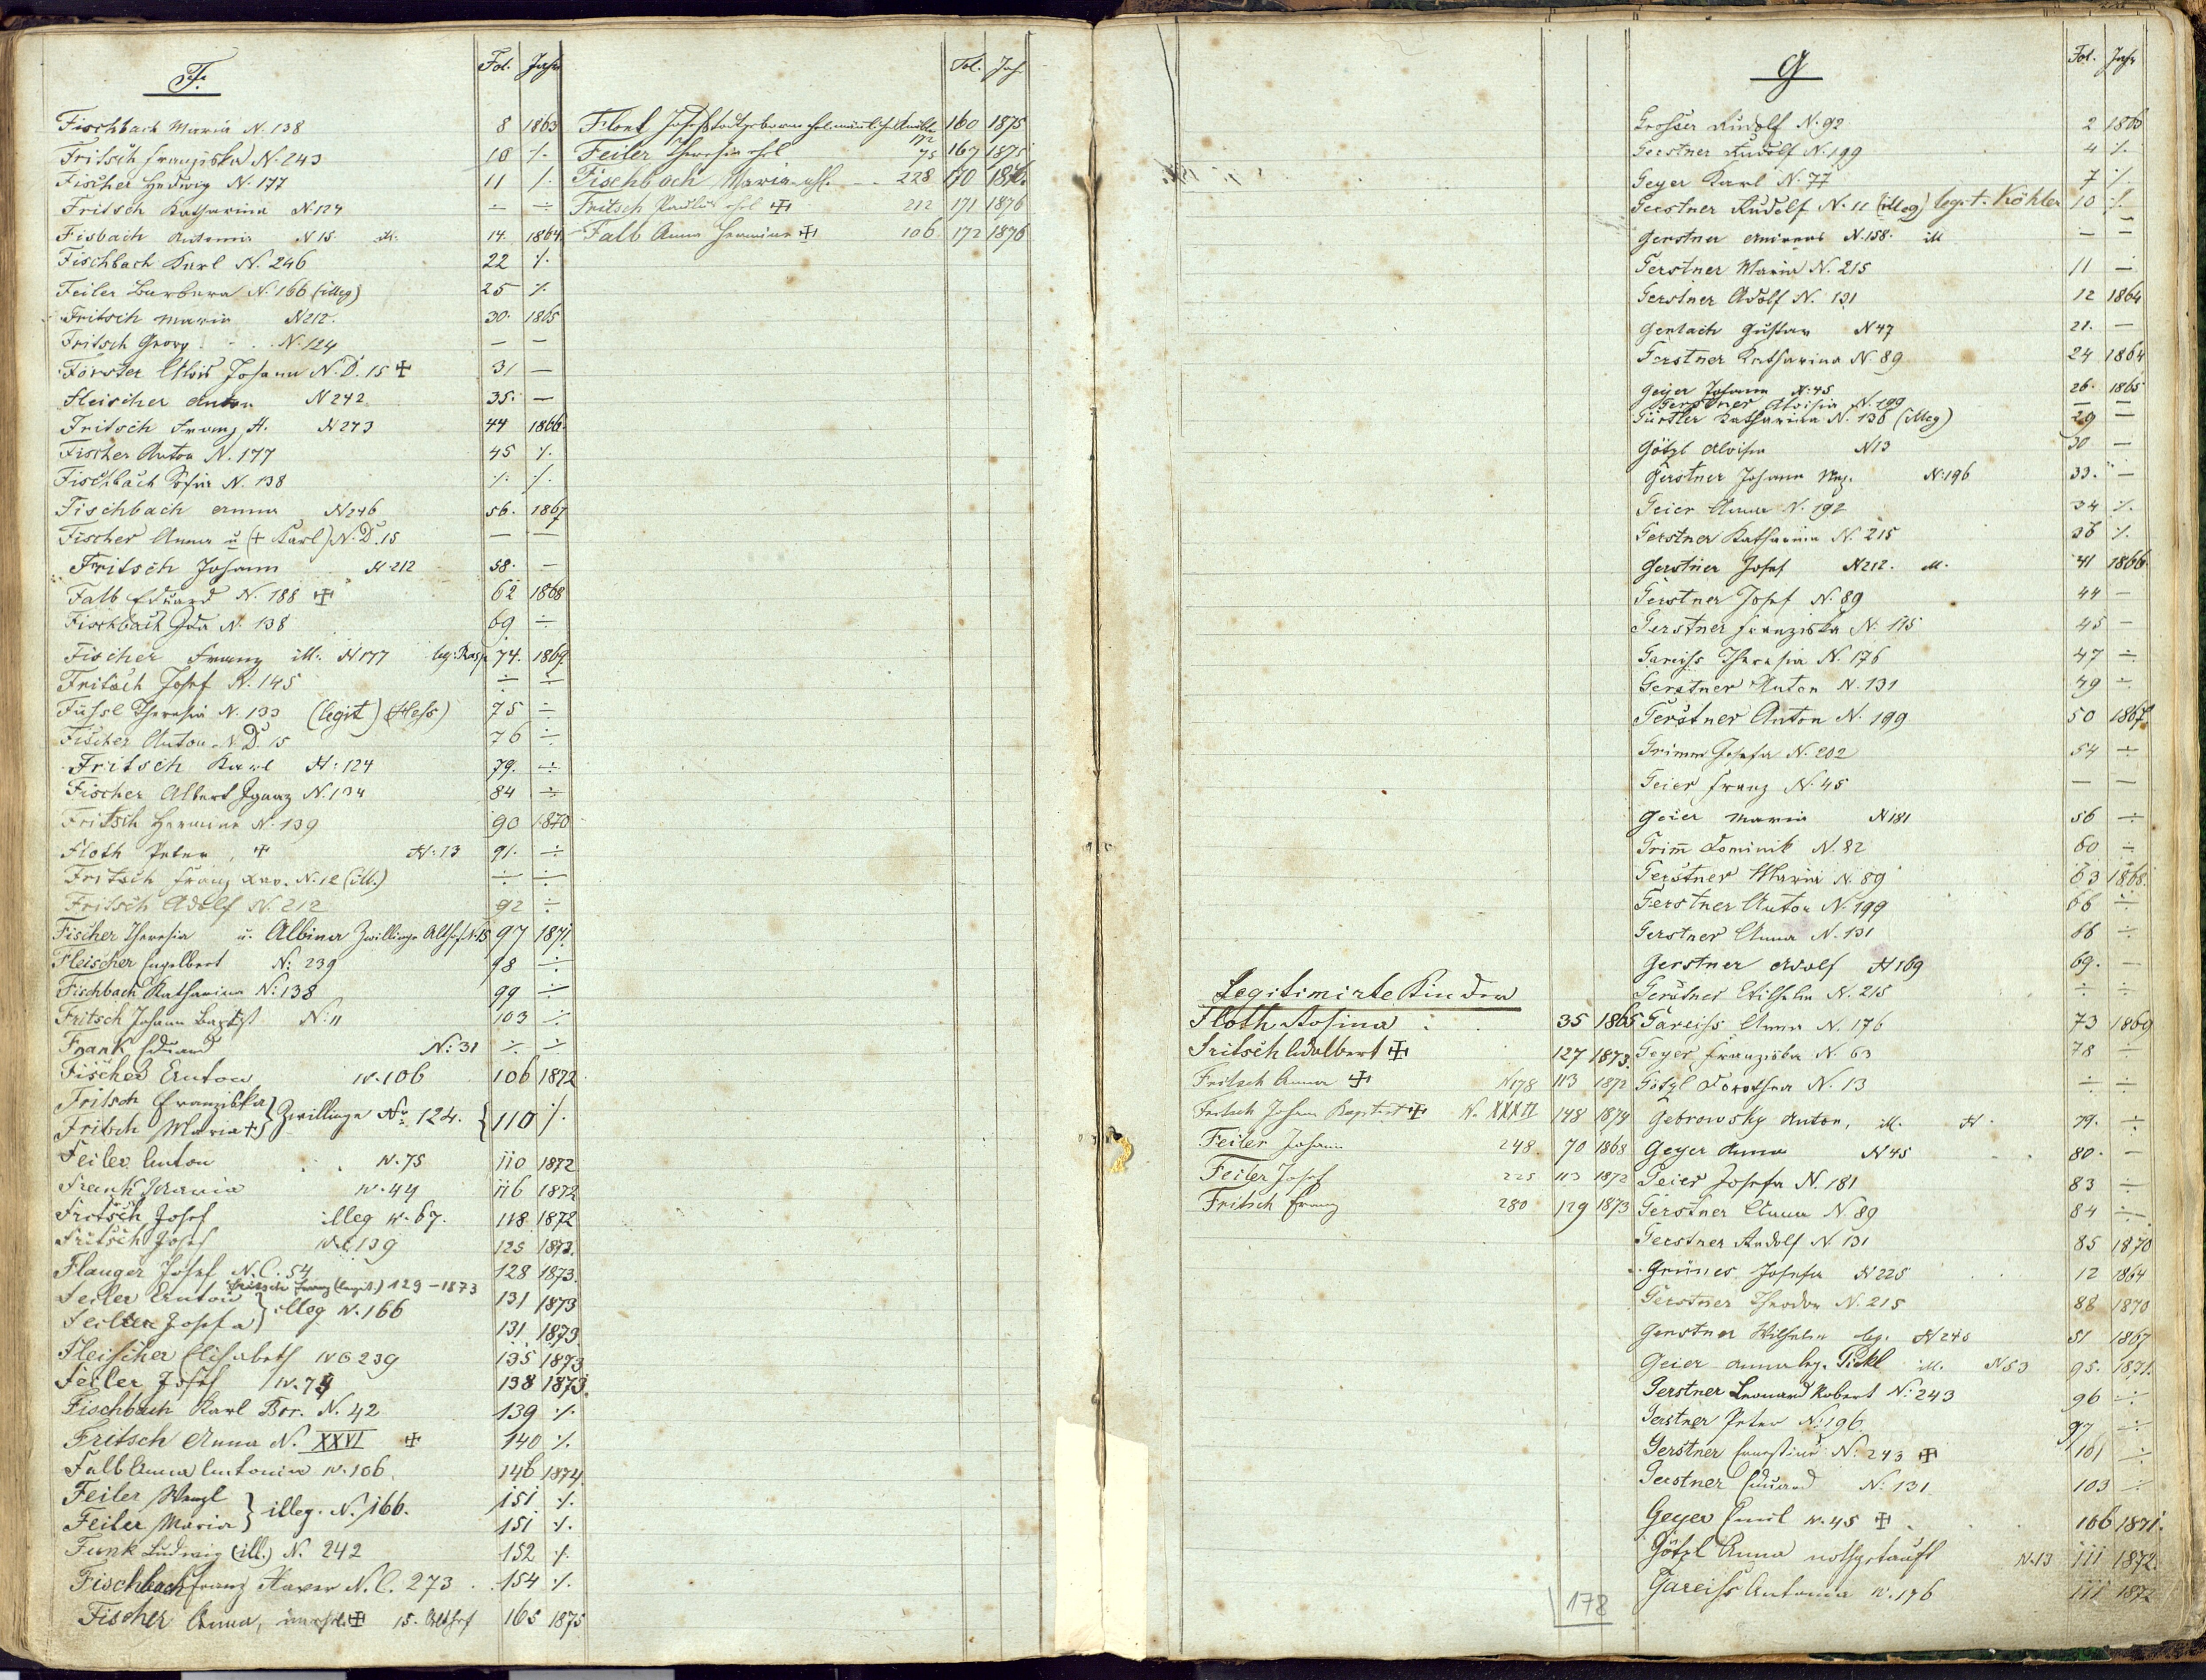 F.
Fol. Jahr
Fischbach Maria N. 138 8 1863
Fritsch Franziska N. 243 10 ./.
Fischer Hedwig N. 177 11 ./.
Fritsch Katharina N 124 ÷ ÷
Fisbach Antonia N 15. ill. 14. 1864
Fischbach Karl N. 246 22 ./.
Feiler Barbara N. 166 (illeg) 25 ./.
Fritsch Maria N 212. 30. 1865
Fritsch Georg N. 124 — —
Förster Alois Johann N. D. 15 ✠ 31 —
Fleischer Anton N 242 35. —
Fritsch Franz A. N 273 44 1866.
Fischer Anton N. 177 45 ./.
Fischbach Sofia N. 138 ./. ./.
Fischbach Anna N 246 56. 1867
Fischer Anna u (+ Karl) N. D. 15 — —
Fritsch Johann N 212 58. —
Falb Eduard N. 188 ✠ 62 1868
Fischbach Ida N. 138 69 ÷
Fischer Franz ill. N 177 leg. 74. 1869.
Fritsch Josef N. 145 ÷ ÷
Füssl Theresia N. 133 (legit) (Hess) 75 ÷
Fischer Anton N D. 15 76 ÷
Fritsch Karl N. 124 79. ÷
Fischer Albert Ignaz N. 134 84 ÷
Fritsch Hermine N. 139 90 1870
Floth Peter, ✠ N. 13 91. ÷
Fritsch Franz Xav. N. 12 (ill.) ÷ ÷
Fritsch Adolf N. 212 92 ÷
Fischer Theresia u. Albina Zwillinge Althof N. 15 97 1871.
Fleischer Engelbert N: 239 98 ÷
Fischbach Katharina N: 138 99 ÷
Fritsch Johann Baptist N: 11 103 ÷
Frank Eduard N: 31 ÷ ÷
Fischer Anton N. 106 106 1872
Fritsch Franziska } Zwillinge No. 124. { 110 ./.
Fritsch Maria +
Feiler Anton N. 75 110 1872
Frank Maria N. 44 116 1872
Fritsch Josef illeg N. 67. 118 1872
Fritsch Josef N.C. 139 125 1873.
Flanger Josef N. C. 54 128 1873.
Fritsch Franz (legit.) 129 - 1873
Feiler Anton } illeg N. 166 131 1873
Feiler Josefa 131 1873
Fleischer Elisabeth N C 239 135 1873
Feiler Josef N. 138 1873.
Fischbach Karl Bor. N. 42 139 ./.
Fritsch Anna N. XXVI ✠ 140 ./.
Falb Anna Antonia N. 106. 146 1874.
Feiler Wenzl } illeg. N. 166. 151 ./.
Feiler Maria 151 ./.
Funk Ludwig (ill.) N. 242 152 ./.
Fischbach Franz Xaver N. C. 273 154 ./.
Fischer Anna, ✠ 15. Althof 165 1875
Fol. Jah.
Josef 160 1875
Feiler Theresia ehl 75 167 1875
Fischbach Maria ehl. 228 170 1876.
Fritsch Paulus ehl ✠ 212 171 1876
Falb Anna Hermine ✠ 106 172 1876
Legitimirte Kinder
Floth Rosina 35 1865
Fritsch Adalbert ✠ 127 1873.
Fritsch Anna ✠ N 178 113 1872
Fritsch Johann Baptist ✠ N. XXXII 148 1874
Feiler Johann 248. 70 1868
Feiler Josef 225 113 1872
Fritsch Franz 280 129 1873
172
G
Fol. Jahr
Grosser Rudolf N. 92 2 1863
Gerstner Rudolf N. 199 4 ./.
Geyer Karl N. 77 7 ./.
Gerstner Rudolf N. 11 (illeg) legit. Köhler 10 ./.
Gerstner Andreas N. 158. ill — —
Gerstner Maria N. 215 11 —
Gerstner Adolf N. 131 12 1864
Gerlach Gustav N 47 21. —
Gerstner Katharina N 89 24 1864
Geyer Johann N. 45 26. 1865
Gerstner Aloisia N. 199 — —
Gürtler Katharina N. 136 (illeg) 29 —
Götzl Aloisia N 13 30 —
Gerstner Johann Nep. N. 196 33. —
Geier Anna N. 192 34 ./.
Gerstner Katharina N. 215 36 ./.
Gerstner Josef N 212. ill. 41 1866.
Gerstner Josef N. 89 44 —
Gerstner Franziska N. 115 45 —
Gareiss Theresia N. 176 47 ÷
Gerstner Anton N. 131 49 ÷
Gerstner Anton N. 199 50 1867.
Grimm Josefa N. 202 54 ÷
Geier Franz N. 45 — —
Geier Maria N 181 56 ÷
Grim̄ Dominik N. 82 60 ÷
Gerstner Maria N. 89 63 1868.
Gerstner Anton N. 199 66 ÷
Gerstner Anna N. 131 66 ÷
Gerstner Adolf N 169 69. —
Gerstner Wilhelm N. 215 ÷ ÷
Gareiss Anna N. 176 73 1869
Geyer Franziska N. 63 78 ÷
Götzl Dorothea N. 13 ÷ ÷
Gebrowsky Anton, ill. N. 79. ÷
Geyer Anna N 45 80. —
Geier Josefa N. 181 83 ÷
Gerstner Anna N. 89 84 ÷
Gerstner Rudolf N. 131 85 1870
Grüner Josefa N 225 12 1864
Gerstner Theodor N. 215 88 1870
Gerstner Wilhelm leg. N 240 51 1867
Geier Anna leg. Pickl ill. N 53 95. 1871.
Gerstner Leonard Robert N: 243 96 ÷
Gerstner Peter N: 196. 97 ÷
Gerstner Ernestine N: 243 ✠ 101 ÷
Gerstner Eduard N: 131. 103 ÷
Geyer Emil N. 45 ✠ 106 1871.
Götzl Anna nothgetauft N. 13 111 1872.
Gareiss Antonia N. 176 111 1872